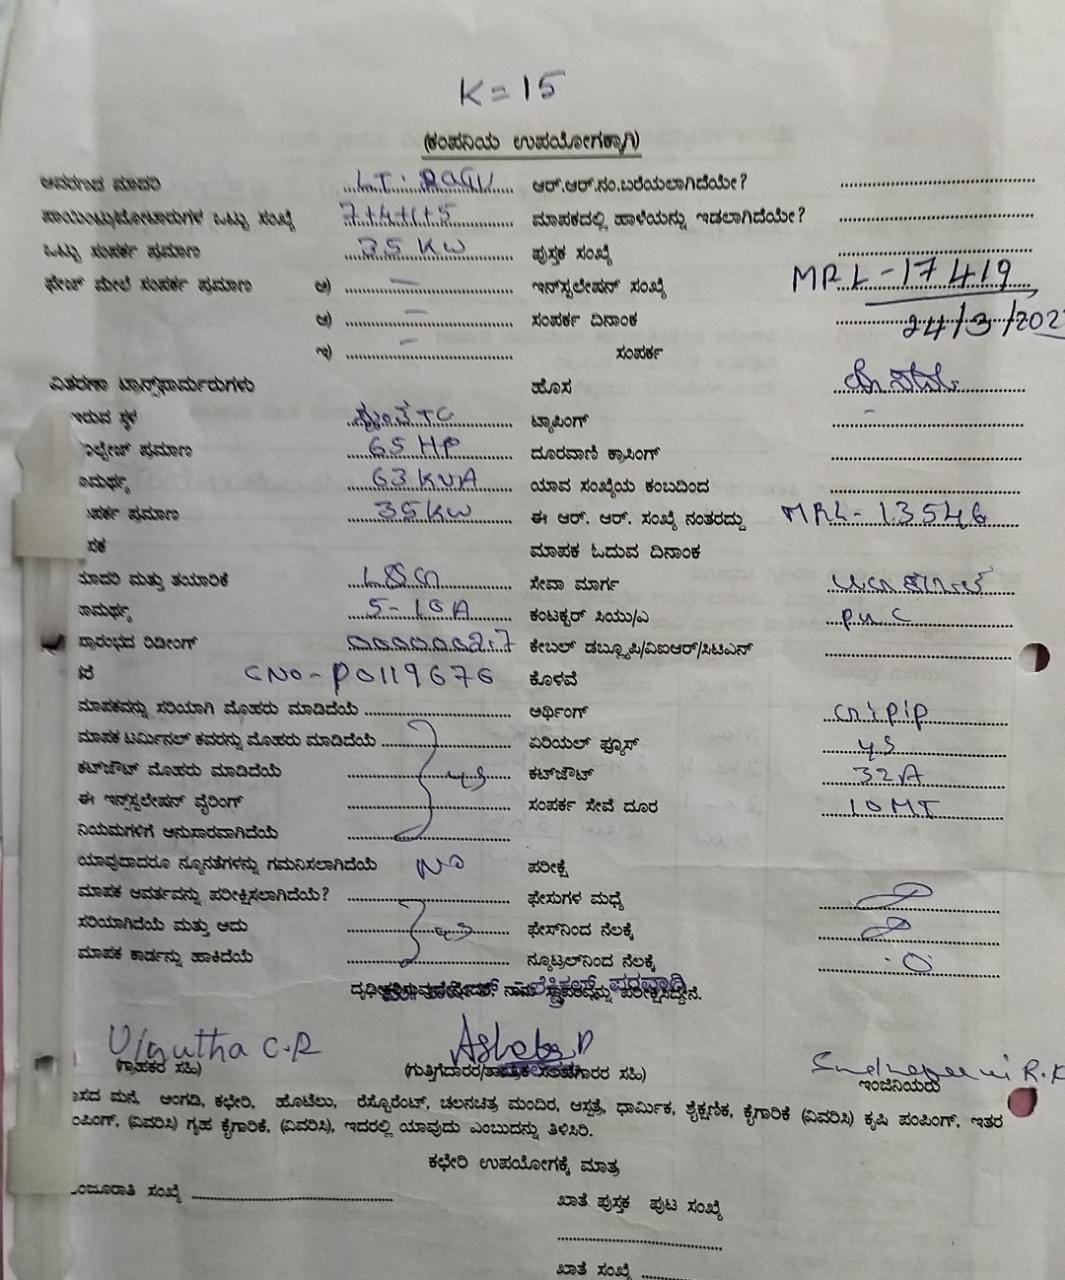 K = 15
(ಕಂಪನಿಯ ಉಪಯೋಗಕ್ಕಾಗಿ)
ಆವರಣದ ಮಾದರಿ LT. ಆರ್.ಆರ್.ನಂ.ಬರೆಯಲಾಗಿದೆಯೇ?
ಪಾಯಿಂಟ್ಸು/ಮೋಟಾರುಗಳ ಒಟ್ಟು ಸಂಖ್ಯೆ 7+4+1+5 ಮಾಪಕದಲ್ಲಿ ಹಾಳೆಯನ್ನು ಇಡಲಾಗಿದೆಯೇ?
ಒಟ್ಟು ಸಂಪರ್ಕ ಪ್ರಮಾಣ 35 KW ಪುಸ್ತಕ ಸಂಖ್ಯೆ
ಫೇಜ್ ಮೇಲೆ ಸಂಪರ್ಕ ಪ್ರಮಾಣ ಅ) — ಇನ್‌ಸ್ಟಲೇಷನ್ ಸಂಖ್ಯೆ MRL-17419
ಆ) — ಸಂಪರ್ಕ ದಿನಾಂಕ 24/3/202
ಇ) — ಸಂಪರ್ಕ
ವಿತರಣಾ ಟ್ರಾನ್ಸ್‌ಫಾರ್ಮರುಗಳು ಹೊಸ
ಇರುವ ಸ್ಥಳ TC ಟ್ಯಾಪಿಂಗ್ –
ವೋಲ್ಟೇಜ್ ಪ್ರಮಾಣ 65 HP ದೂರವಾಣಿ ಕ್ರಾಸಿಂಗ್
ಸಾಮರ್ಥ್ಯ 63 KVA ಯಾವ ಸಂಖ್ಯೆಯ ಕಂಬದಿಂದ
ಸಂಪರ್ಕ ಪ್ರಮಾಣ 35KW ಈ ಆರ್. ಆರ್. ಸಂಖ್ಯೆ ನಂತರದ್ದು MRL-13546
ಮಾಪಕ ಓದುವ ದಿನಾಂಕ
ಮಾದರಿ ಮತ್ತು ತಯಾರಿಕೆ ಸೇವಾ ಮಾರ್ಗ
ಸಾಮರ್ಥ್ಯ 5-10A ಕಂಟಕ್ಟರ್ ಸಿಯು/ಎ PVC
ಪ್ರಾರಂಭದ ರಿಡೀಂಗ್ 0000002.7 ಕೇಬಲ್ ಡಬ್ಲ್ಯೂಪಿ/ವಿಐಆರ್/ಸಿಟಿಎನ್
CNO-P0119676 ಕೊಳವೆ
ಮಾಪಕವನ್ನು ಸರಿಯಾಗಿ ಮೊಹರು ಮಾಡಿದೆಯೆ ಅರ್ಥಿಂಗ್ G.I.PIP
ಮಾಪಕ ಟರ್ಮಿನಲ್ ಕವರನ್ನು ಮೊಹರು ಮಾಡಿದೆಯೆ ಏರಿಯಲ್ ಫ್ಯೂಸ್ ys
ಕಟ್‌ಔಟ್ ಮೊಹರು ಮಾಡಿದೆಯೆ ys ಕಟ್‌ಔಟ್ 32A
ಈ ಇನ್‌ಸ್ಟಲೇಷನ್ ವೈರಿಂಗ್ ಸಂಪರ್ಕ ಸೇವೆ ದೂರ 10MT
ನಿಯಮಗಳಿಗೆ ಅನುಸಾರವಾಗಿದೆಯೆ
ಯಾವುದಾದರೂ ನ್ಯೂನತೆಗಳನ್ನು ಗಮನಿಸಲಾಗಿದೆಯೆ NO ಪರೀಕ್ಷೆ
ಮಾಪಕ ಆವರ್ತವನ್ನು ಪರೀಕ್ಷಿಸಲಾಗಿದೆಯೆ? ಫೇಸುಗಳ ಮಧ್ಯೆ
ಸರಿಯಾಗಿದೆಯೆ ಮತ್ತು ಆದು ys ಫೇಸ್‌ನಿಂದ ನೆಲಕ್ಕೆ
ಮಾಪಕ ಕಾರ್ಡನ್ನು ಹಾಕಿದೆಯೆ ನ್ಯೂಟ್ರಲ್‌ನಿಂದ ನೆಲಕ್ಕೆ 0
ನಾನು ಸ್ಥಾವರವನ್ನು ಪರೀಕ್ಷಿಸಿದ್ದೇನೆ.
C.R
(ಗ್ರಾಹಕರ ಸಹಿ) (ಗುತ್ತಿಗೆದಾರರ/ತಾಂತ್ರಿಕ ಸಲಹೆಗಾರರ ಸಹಿ) ಇಂಜಿನಿಯರು
ವಾಸದ ಮನೆ, ಅಂಗಡಿ, ಕಛೇರಿ, ಹೊಟೆಲು, ರೆಸ್ಟೊರೆಂಟ್, ಚಲನಚಿತ್ರ ಮಂದಿರ, ಆಸ್ಪತ್ರೆ, ಧಾರ್ಮಿಕ, ಶೈಕ್ಷಣಿಕ, ಕೈಗಾರಿಕೆ (ವಿವರಿಸಿ) ಕೃಷಿ ಪಂಪಿಂಗ್, ಇತರ
ಪಂಪಿಂಗ್, (ವಿವರಿಸಿ) ಗೃಹ ಕೈಗಾರಿಕೆ, (ವಿವರಿಸಿ), ಇದರಲ್ಲಿ ಯಾವುದು ಎಂಬುದನ್ನು ತಿಳಿಸಿರಿ.
ಕಛೇರಿ ಉಪಯೋಗಕ್ಕೆ ಮಾತ್ರ
ಮಂಜೂರಾತಿ ಸಂಖ್ಯೆ ಖಾತೆ ಪುಸ್ತಕ ಪುಟ ಸಂಖ್ಯೆ
ಖಾತೆ ಸಂಖ್ಯೆ